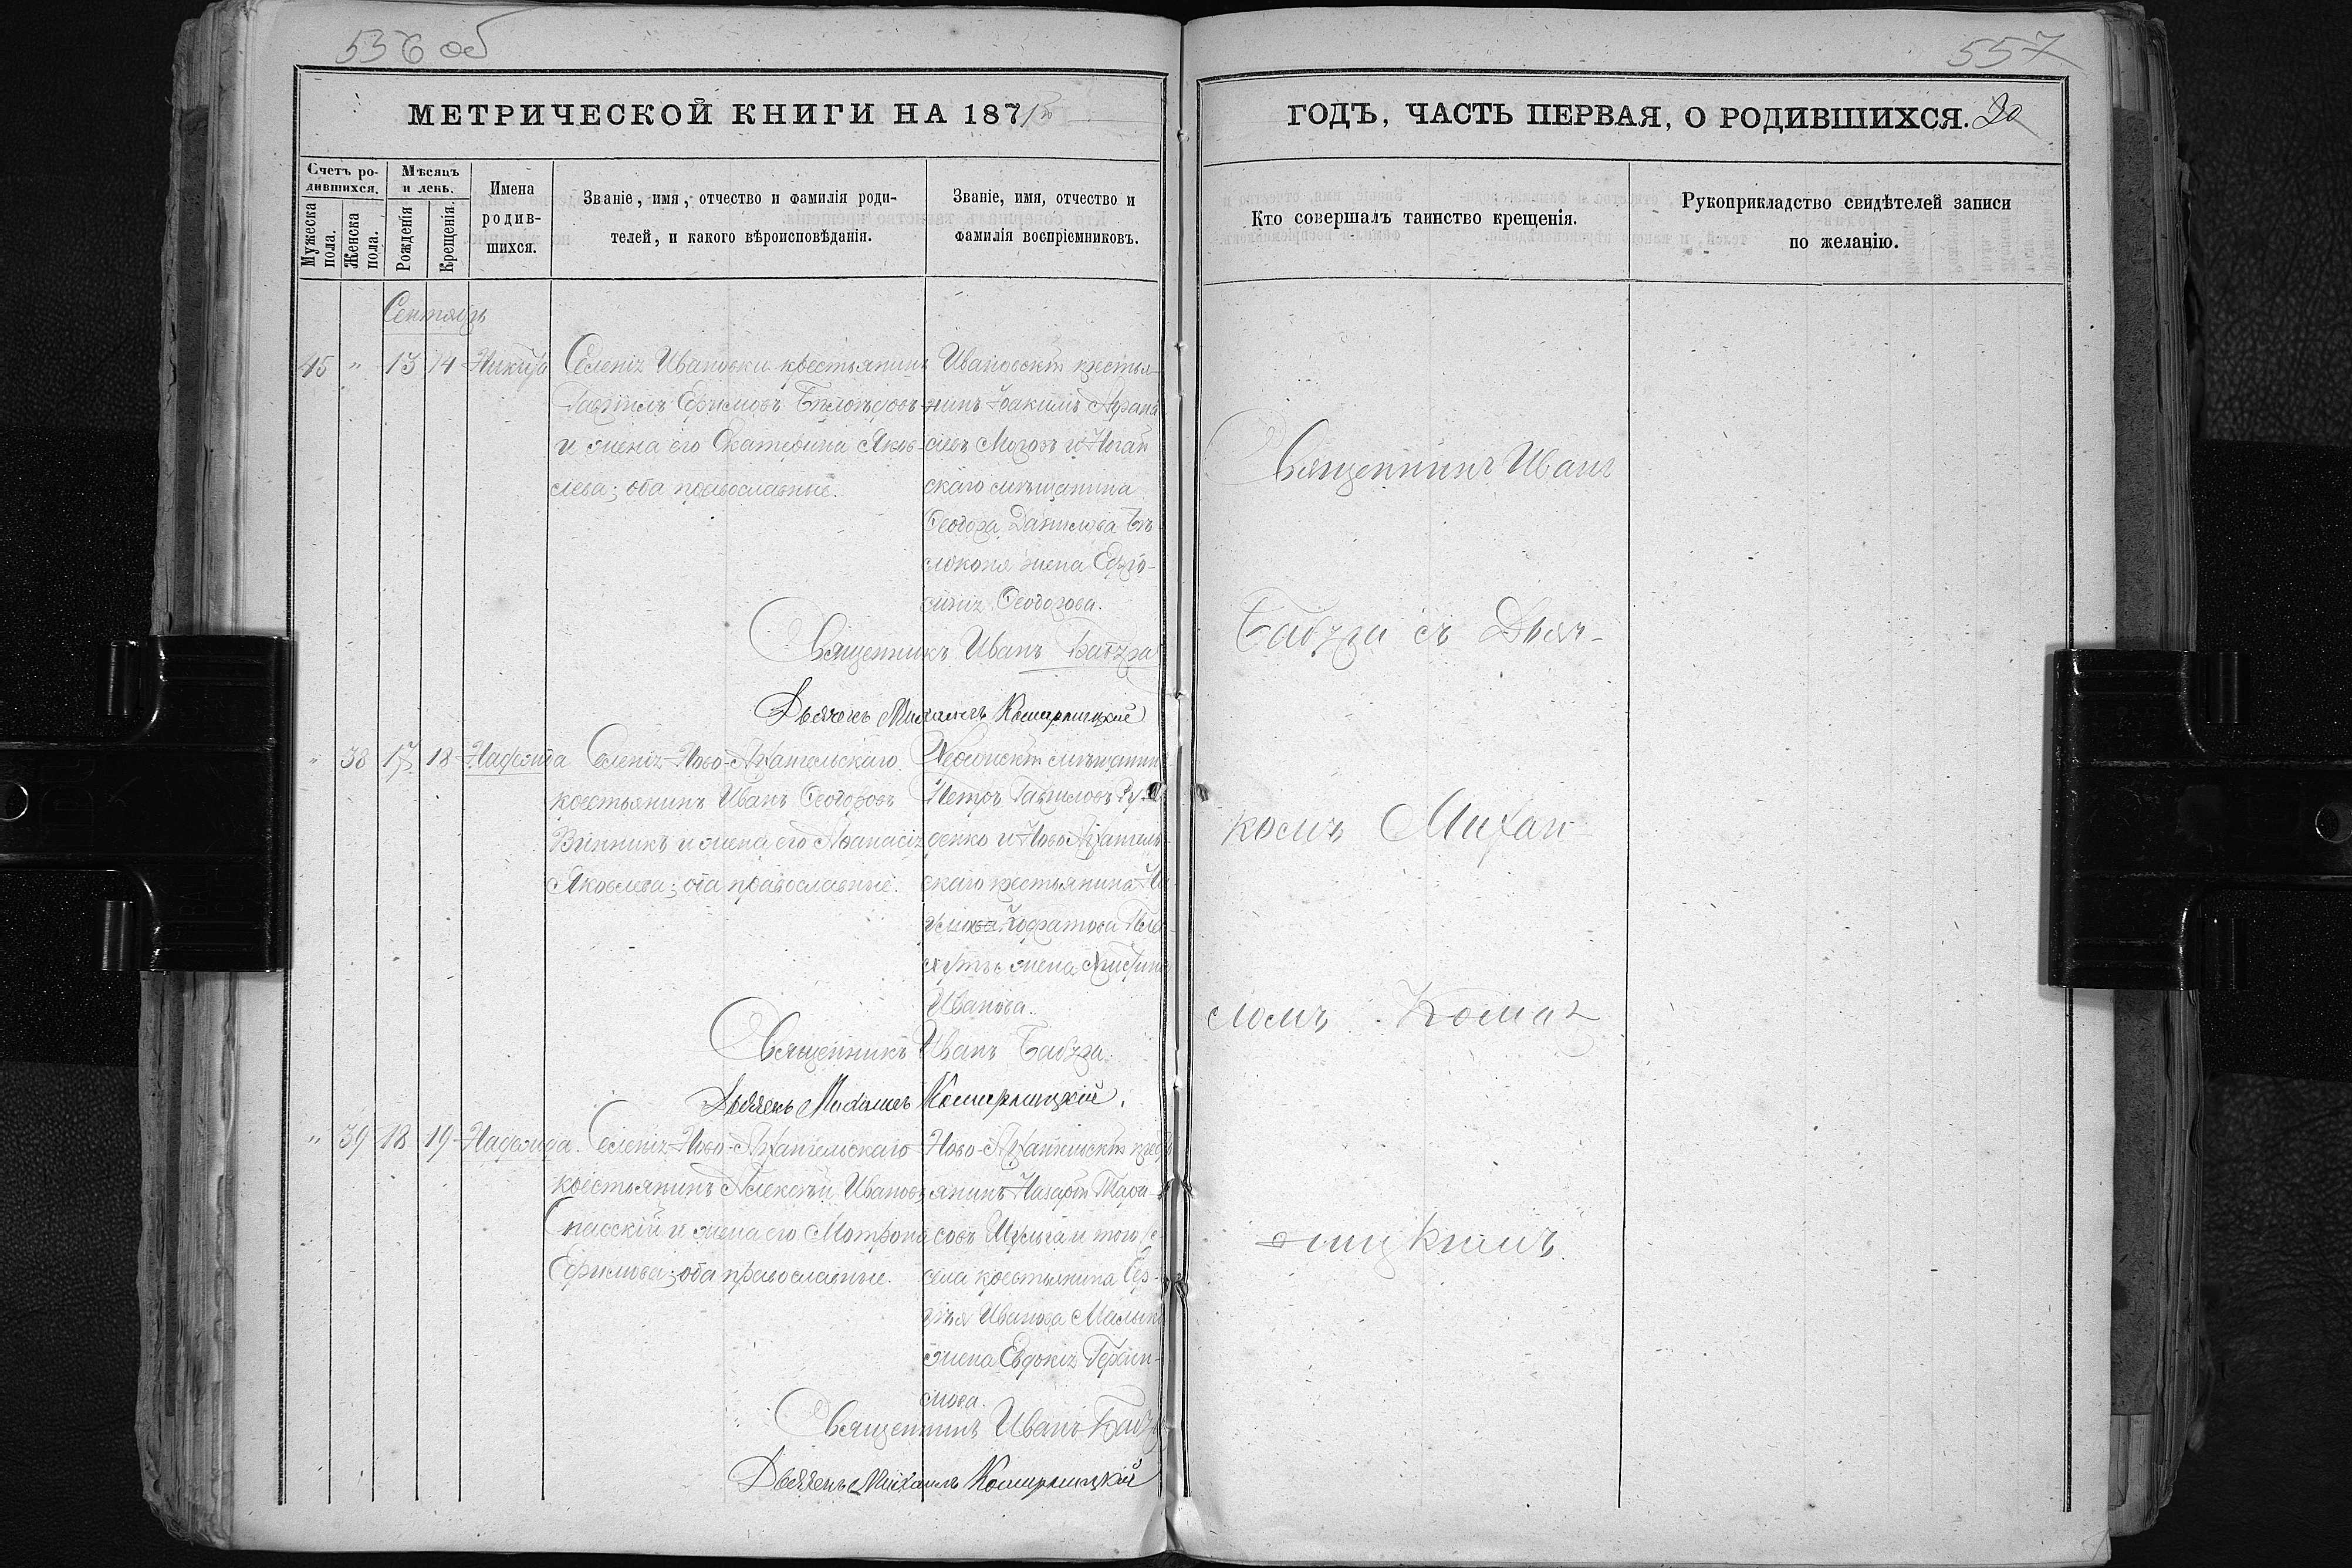 536 об
МЕТРИЧЕСКОЙ КНИГИ НА 1871й
Счетъ родившихся.
Мужеска пола.
Женска пола.
Мѣсяцъ и день.
Рожденія
Крещенія.
Имена родившихся.
Званіе, имя, отчество и фамилія роди-
телей, и какого вѣроисповѣданія.
Званіе, имя, отчество и
фамилія воспріемниковъ.
Сентябрь
45 " 13 14 Никита
Селенія Ивановки крестьянинъ
Гавріилъ Ефимовъ
и жена его Екатерина Яков-
лева; оба православные.
Ивановскій крестья-
нинъ Іоакимъ Афана
сіевъ Морозъ и Ногай
скаго мѣщанина
Ѳеодора Данилова Бѣ
локоня жена Ефро-
синія Ѳеодорова.
Священникъ Иванъ Бабура
Дьячекъ Михаилъ Комарницкій
" 38 17 18 Надежда
Селенія Ново-Архангельскаго
крестьянинъ Иванъ Ѳеодоровъ
Винникъ и жена его Аѳанасія
Яковлева; оба православные.
Херсонскій мѣщанинъ
Петръ Гавриловъ Ру-
денко и Ново Архангель-
скаго крестьянина
жена Христина
Иванова.
Священникъ Иванъ Бабура.
Дьячекъ Михаилъ Комарницкій.
" 39 18 19 Надежда.
Селенія Ново-Архангельскаго
крестьянинъ Алексѣй Ивановъ
Спасскій и жена его Мотрона
Ефимова; оба православные.
Ново-Архангельскій кресть
янинъ Назарій Тара-
совъ Шульга и того
села крестьянина Сер-
гѣя Иванова
жена Евдокія Герасим-
мова.
Священникъ Иванъ Бабура
Дьячекъ Михаилъ Комарницкій
557
ГОДЪ, ЧАСТЬ ПЕРВАЯ, О РОДИВШИХСЯ. 20
Кто совершалъ таинство крещенія.
Рукоприкладство свидѣтелей записи
по желанію.
Священникъ Иванъ
Бабура съ Дьяч-
комъ Михаи-
ломъ Комар
ницкимъ.